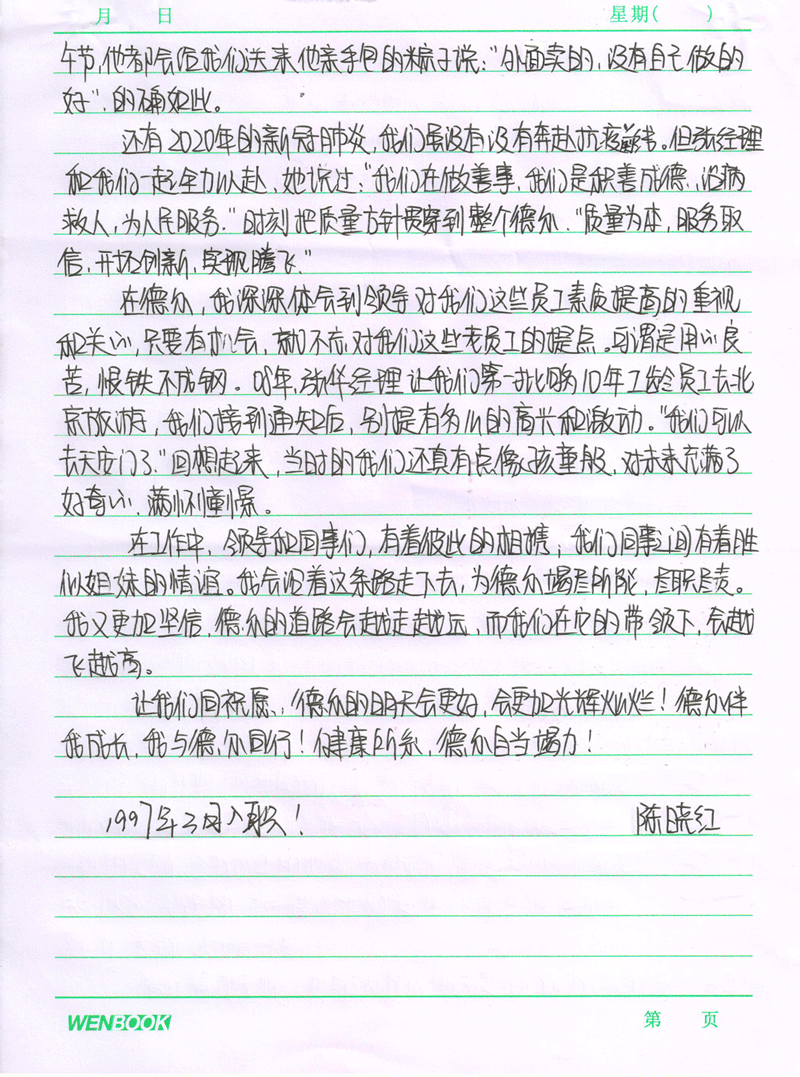 月 日 星期( )
午节,他都会给我们送来他亲手包的粽子说:“外面卖的,没有自己做的
好”,的确如此。
还有2020年的新冠肺炎,我们虽没有没有奔赴抗疫前线。但张经理
和我们一起全力以赴,她说过:“我们在做善事,我们是积善成德,治病
救人,为人民服务.”时刻把质量方针贯穿到整个德尔.“质量为本,服务取
信,开拓创新,实现腾飞.”
在德尔,我深深体会到领导对我们这些员工素质提高的重视
和关心,只要有机会,就不忘对我们这些老员工的提点。可谓是用心良
苦,恨铁不成钢。08年,张华经理让我们第一批满10年工龄员工去北
京旅游,我们接到通知后,别提有多么的高兴和激动。“我们可以
去天安门了.”回想起来,当时的我们还真有点像孩童般,对未来充满了
好奇心,满怀憧憬。
在工作中,领导和同事们,有着彼此的相携,我们同事之间有着胜
似姐妹的情谊。我会沿着这条路走下去,为德尔竭尽所能,尽职尽责。
我又更加坚信,德尔的道路会越走越远,而我们在它的带领下,会越
飞越高。
让我们同祝愿,德尔的明天会更好,会更加光辉灿烂!德尔伴
我成长,我与德尔同行!健康所系,德尔自当竭力!
1997年3月入职! 陈晓红
WENBOOK 第 页